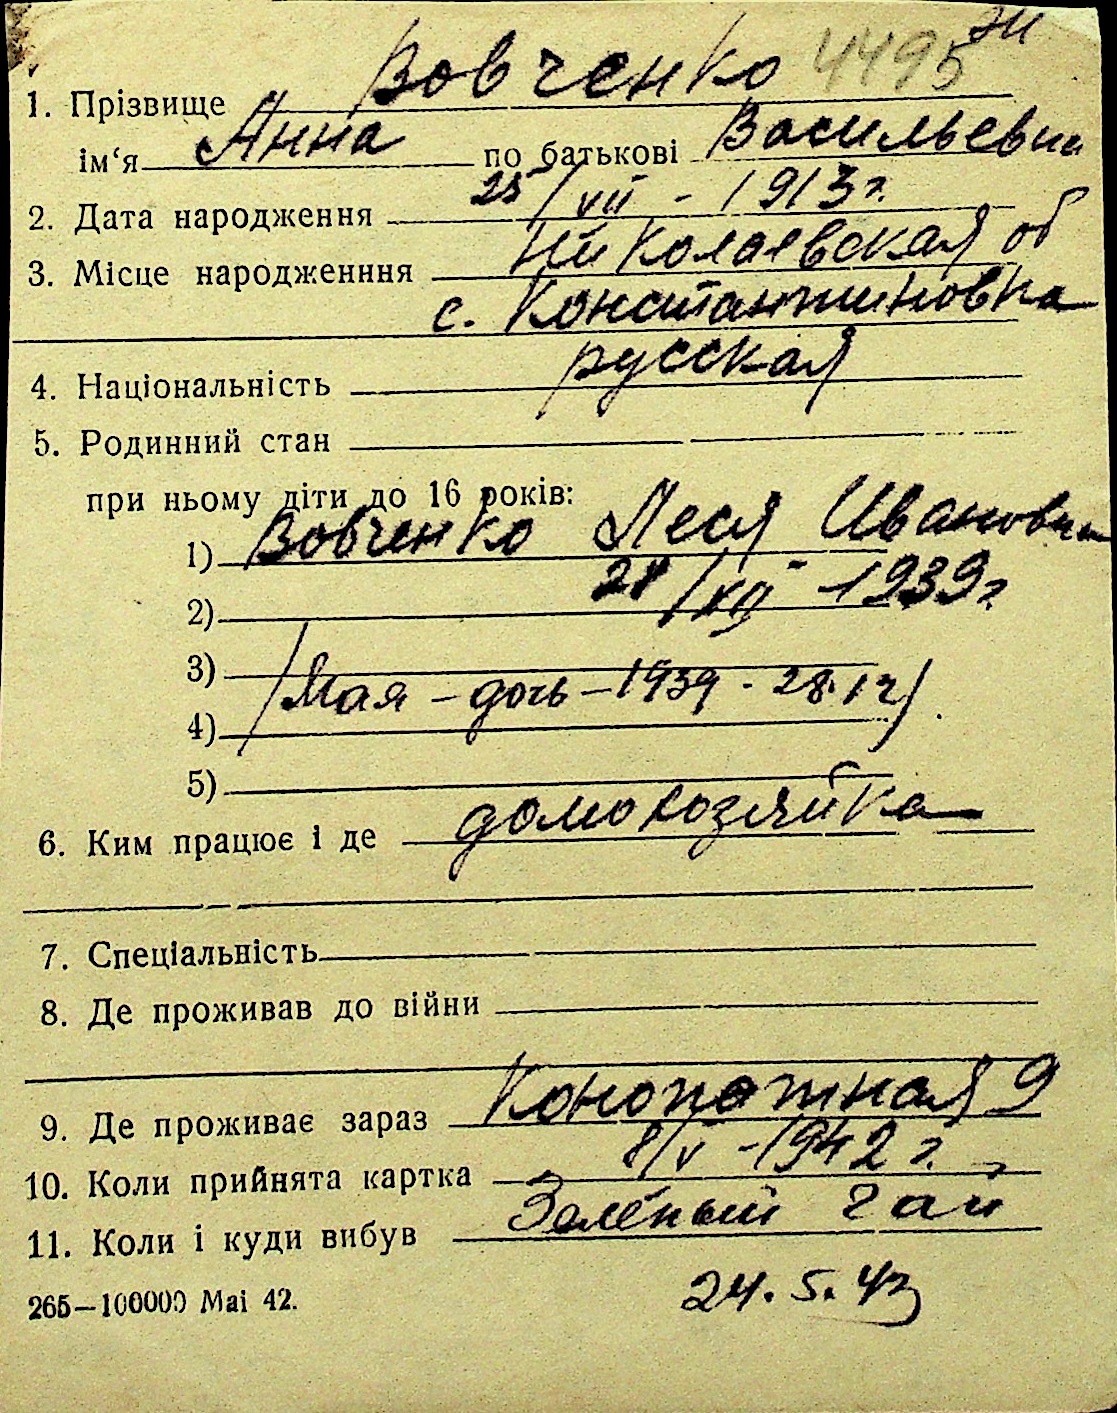 4495
1. Прізвище Вовченко
ім‘я Анна по батькові Васильевна
2. Дата народження 25/VII - 1913 г.
3. Місце народженння Николаевская об
с. Константиновка
4. Національність русская
5. Родинний стан
при ньому діти до 16 років:
1) Вовченко Леся Ивановна
2) 28/XII - 1939 г.
3)
/Мая - дочь - 1939 - 28.12/
4)
5)
6. Ким працює і де домохозяйка
7. Спеціальність
8. Де проживав до війни
9. Де проживає зараз Конопатная 9
10. Коли прийнята картка 8/V - 1942 г.
11. Коли і куди вибув Зелёный Гай
265—100000 Маі 42. 24. 5. 43